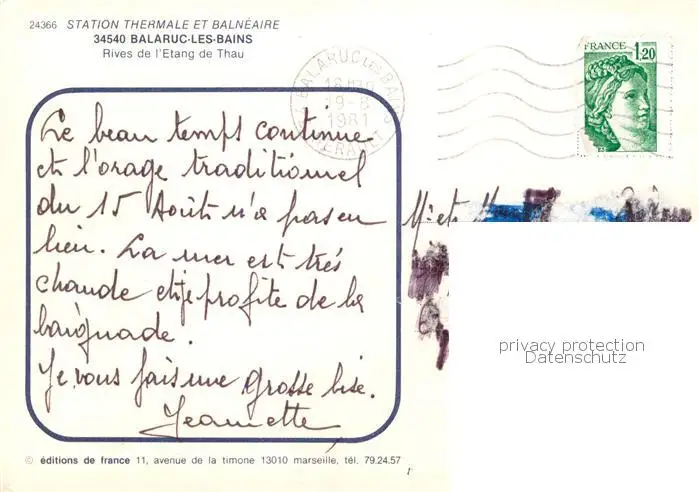 24366 STATION THERMALE ET BALNÉAIRE
34540 BALARUC-LES-BAINS
Rives de l'Etang de Thau
BALARUC LES BAINS
19-8
1981
HERAULT
FRANCE 1,20
Le beau temps continue
et l'orage traditionnel
du 15 Août n'a pas eu
lieu. La mer est très
chaude et je profite de la
baignade.
Je vous fais une grosse bise.
Jeannette
privacy protection
Datenschutz
© éditions de france 11, avenue de la timone 13010 marseille, tél. 79.24.57